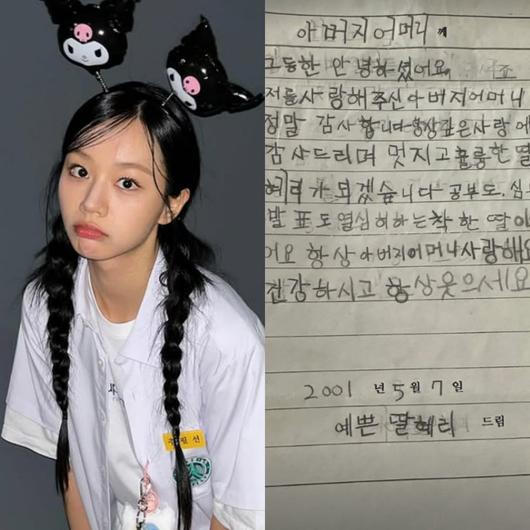 아버지어머니께
그동안 안녕하셨어요
저를사랑해주신아버지어머니
정말 감사합니다항상깊은사랑에
감사드리며 멋지고훌륭한 딸
혜리가 되겠습니다 공부도,심
발표도열심히하는착한딸이
어요 항상아버지어머니사랑해요
건강하시고 항상웃으세요
2001 년 5 월 7 일
예쁜 딸혜리 드림
정일선